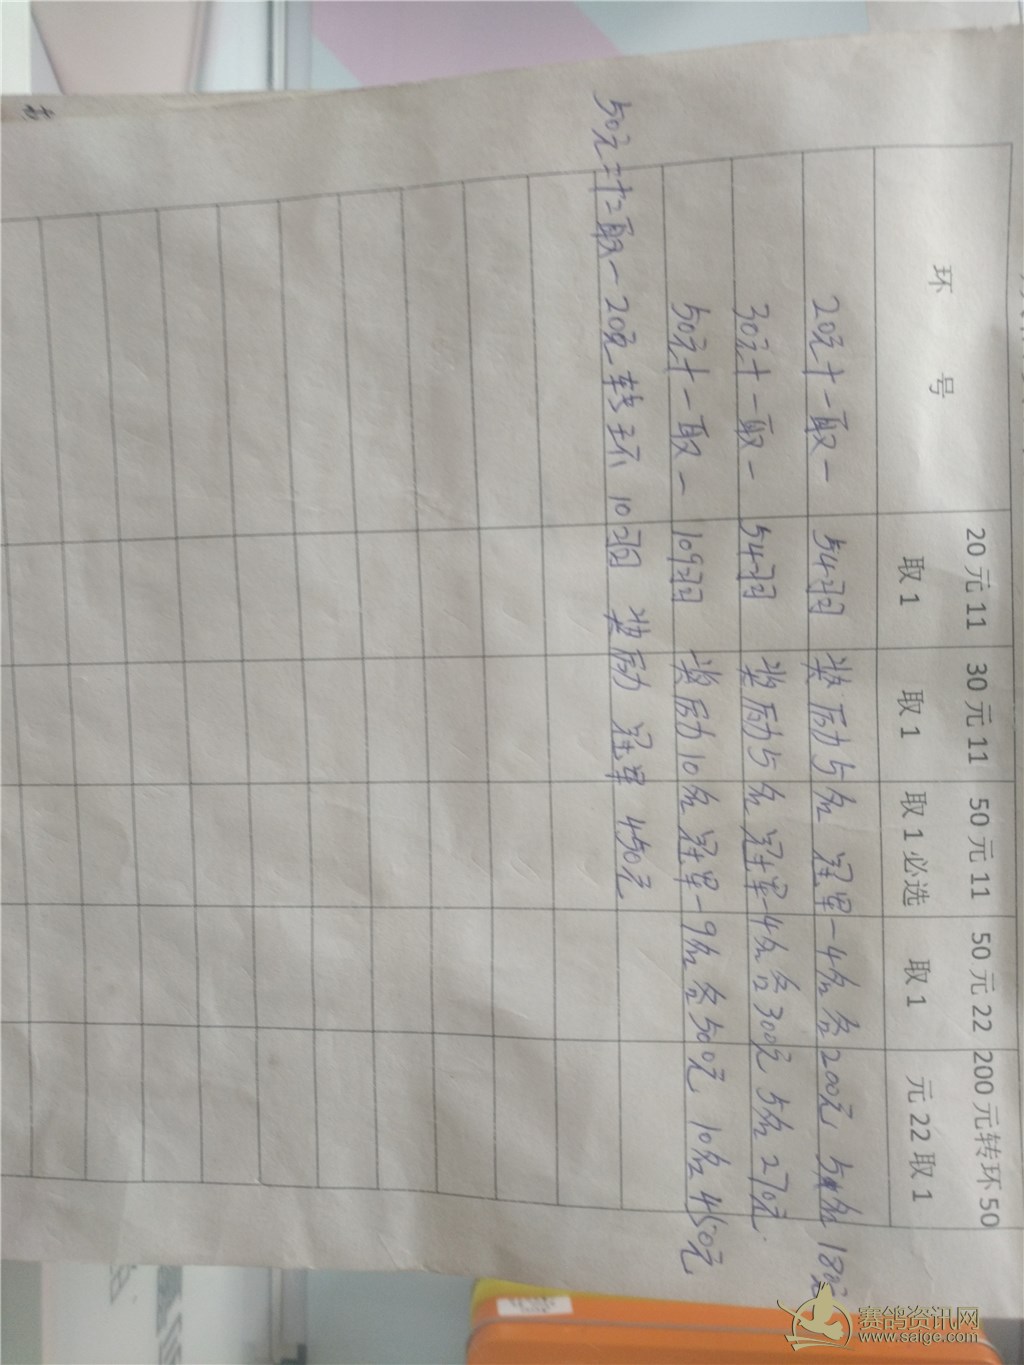 环 号 20元11取1 30元11取1 50元11取1必选 50元22取1 200元转环50元22取1
20元十一取一 54羽 奖励5名 冠军-4名各200元 5名180元
30元十一取一 54羽 奖励5名 冠军-4名各300元 5名270元
50元十一取一 109羽 奖励10名 冠军-9名各500元 10名450元
50元二十二取一 200元转环 10羽 奖励 冠军 450元
赛鸽资讯网
www.saige.com